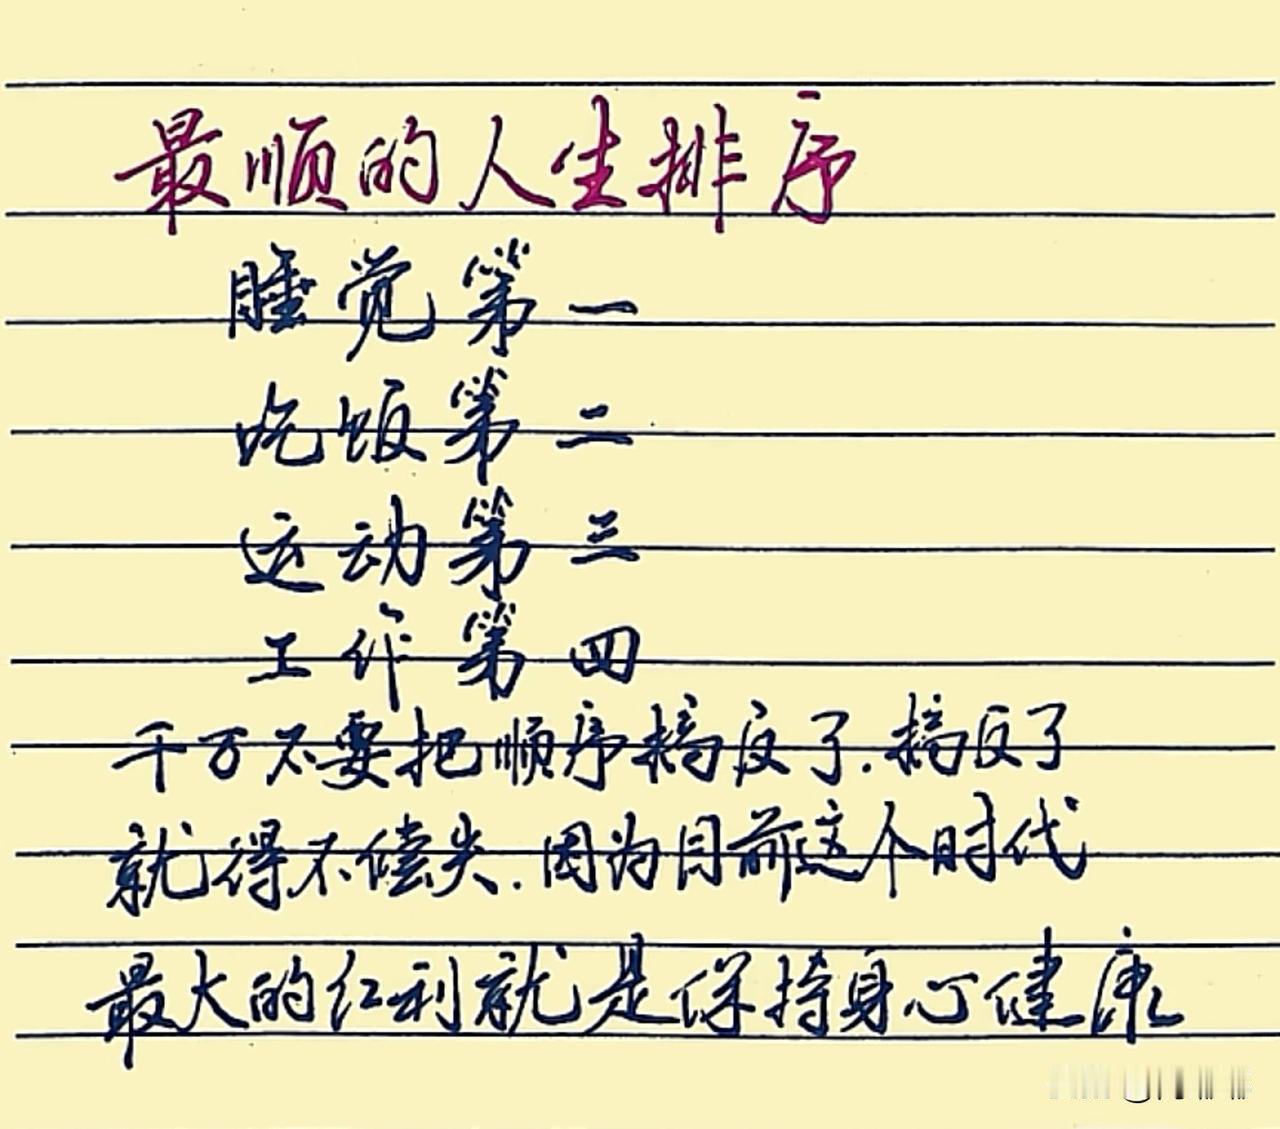 最顺的人生排序
睡觉第一
吃饭第二
运动第三
工作第四
千万不要把顺序搞反了.搞反了
就得不偿失.因为目前这个时代
最大的红利就是保持身心健康